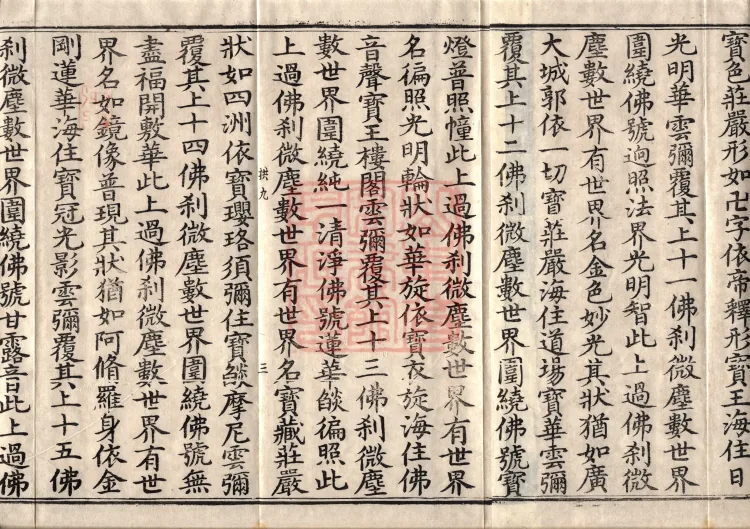 寶色莊嚴形如卍字依帝釋形寶王海住日
光明華雲彌覆其上十一佛剎微塵數世界
圍繞佛號逈照法界光明智此上過佛剎微
塵數世界有世界名金色妙光其狀猶如廣
大城郭依一切寶莊嚴海住道場寶華雲彌
覆其上十二佛剎微塵數世界圍繞佛號寶
燈普照幢此上過佛剎微塵數世界有世界
名徧照光明輪狀如華旋依寶衣旋海住佛
音聲寶王樓閣雲彌覆其上十三佛剎微塵
數世界圍繞純一清淨佛號蓮華燄徧照此
上過佛剎微塵數世界有世界名寶藏莊嚴
拱九 三
狀如四洲依寶瓔珞須彌住寶燄摩尼雲彌
覆其上十四佛剎微塵數世界圍繞佛號無
盡福開敷華此上過佛剎微塵數世界有世
界名如鏡像普現其狀猶如阿脩羅身依金
剛蓮華海住寶冠光影雲彌覆其上十五佛
剎微塵數世界圍繞佛號甘露音此上過佛